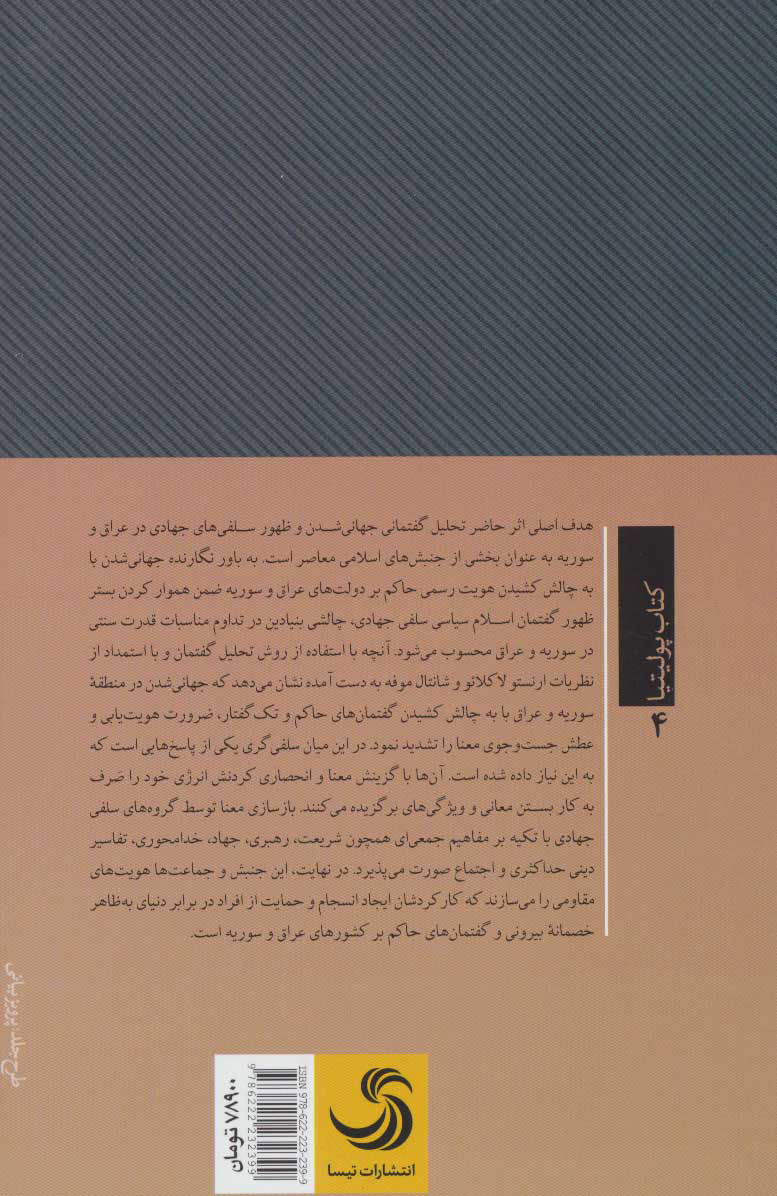 کتاب پولیتیا
۴
هدف اصلی اثر حاضر تحلیل گفتمانی جهانی‌شدن و ظهور سلفی‌های جهادی در عراق و
سوریه به عنوان بخشی از جنبش‌های اسلامی معاصر است. به باور نگارنده جهانی‌شدن با
به چالش کشیدن هویت رسمی حاکم بر دولت‌های عراق و سوریه ضمن هموار کردن بستر
ظهور گفتمان اسلام سیاسی سلفی جهادی، چالشی بنیادین در تداوم مناسبات قدرت سنتی
در سوریه و عراق محسوب می‌شود. آنچه با استفاده از روش تحلیل گفتمان و با استمداد از
نظریات ارنستو لاکلائو و شانتال موفه به دست آمده نشان می‌دهد که جهانی‌شدن در منطقهٔ
سوریه و عراق با به چالش کشیدن گفتمان‌های حاکم و تک‌گفتار، ضرورت هویت‌یابی و
عطش جست‌وجوی معنا را تشدید نمود. در این میان سلفی‌گری یکی از پاسخ‌هایی است که
به این نیاز داده شده است. آن‌ها با گزینش معنا و انحصاری کردنش انرژی خود را صَرف
به کار بستن معانی و ویژگی‌های برگزیده می‌کنند. بازسازی معنا توسط گروه‌های سلفی
جهادی با تکیه بر مفاهیم جمعی‌ای همچون شریعت، رهبری، جهاد، خدامحوری، تفاسیر
دینی حداکثری و اجتماع صورت می‌پذیرد. در نهایت، این جنبش و جماعت‌ها هویت‌های
مقاومی را می‌سازند که کارکردشان ایجاد انسجام و حمایت از افراد در برابر دنیای به‌ظاهر
خصمانهٔ بیرونی و گفتمان‌های حاکم بر کشورهای عراق و سوریه است.
طرح جلد: پرویز بیانی
انتشارات تیسا
ISBN 978-622-223-239-9
9 786222 232399
۷۸۹۰۰ تومان